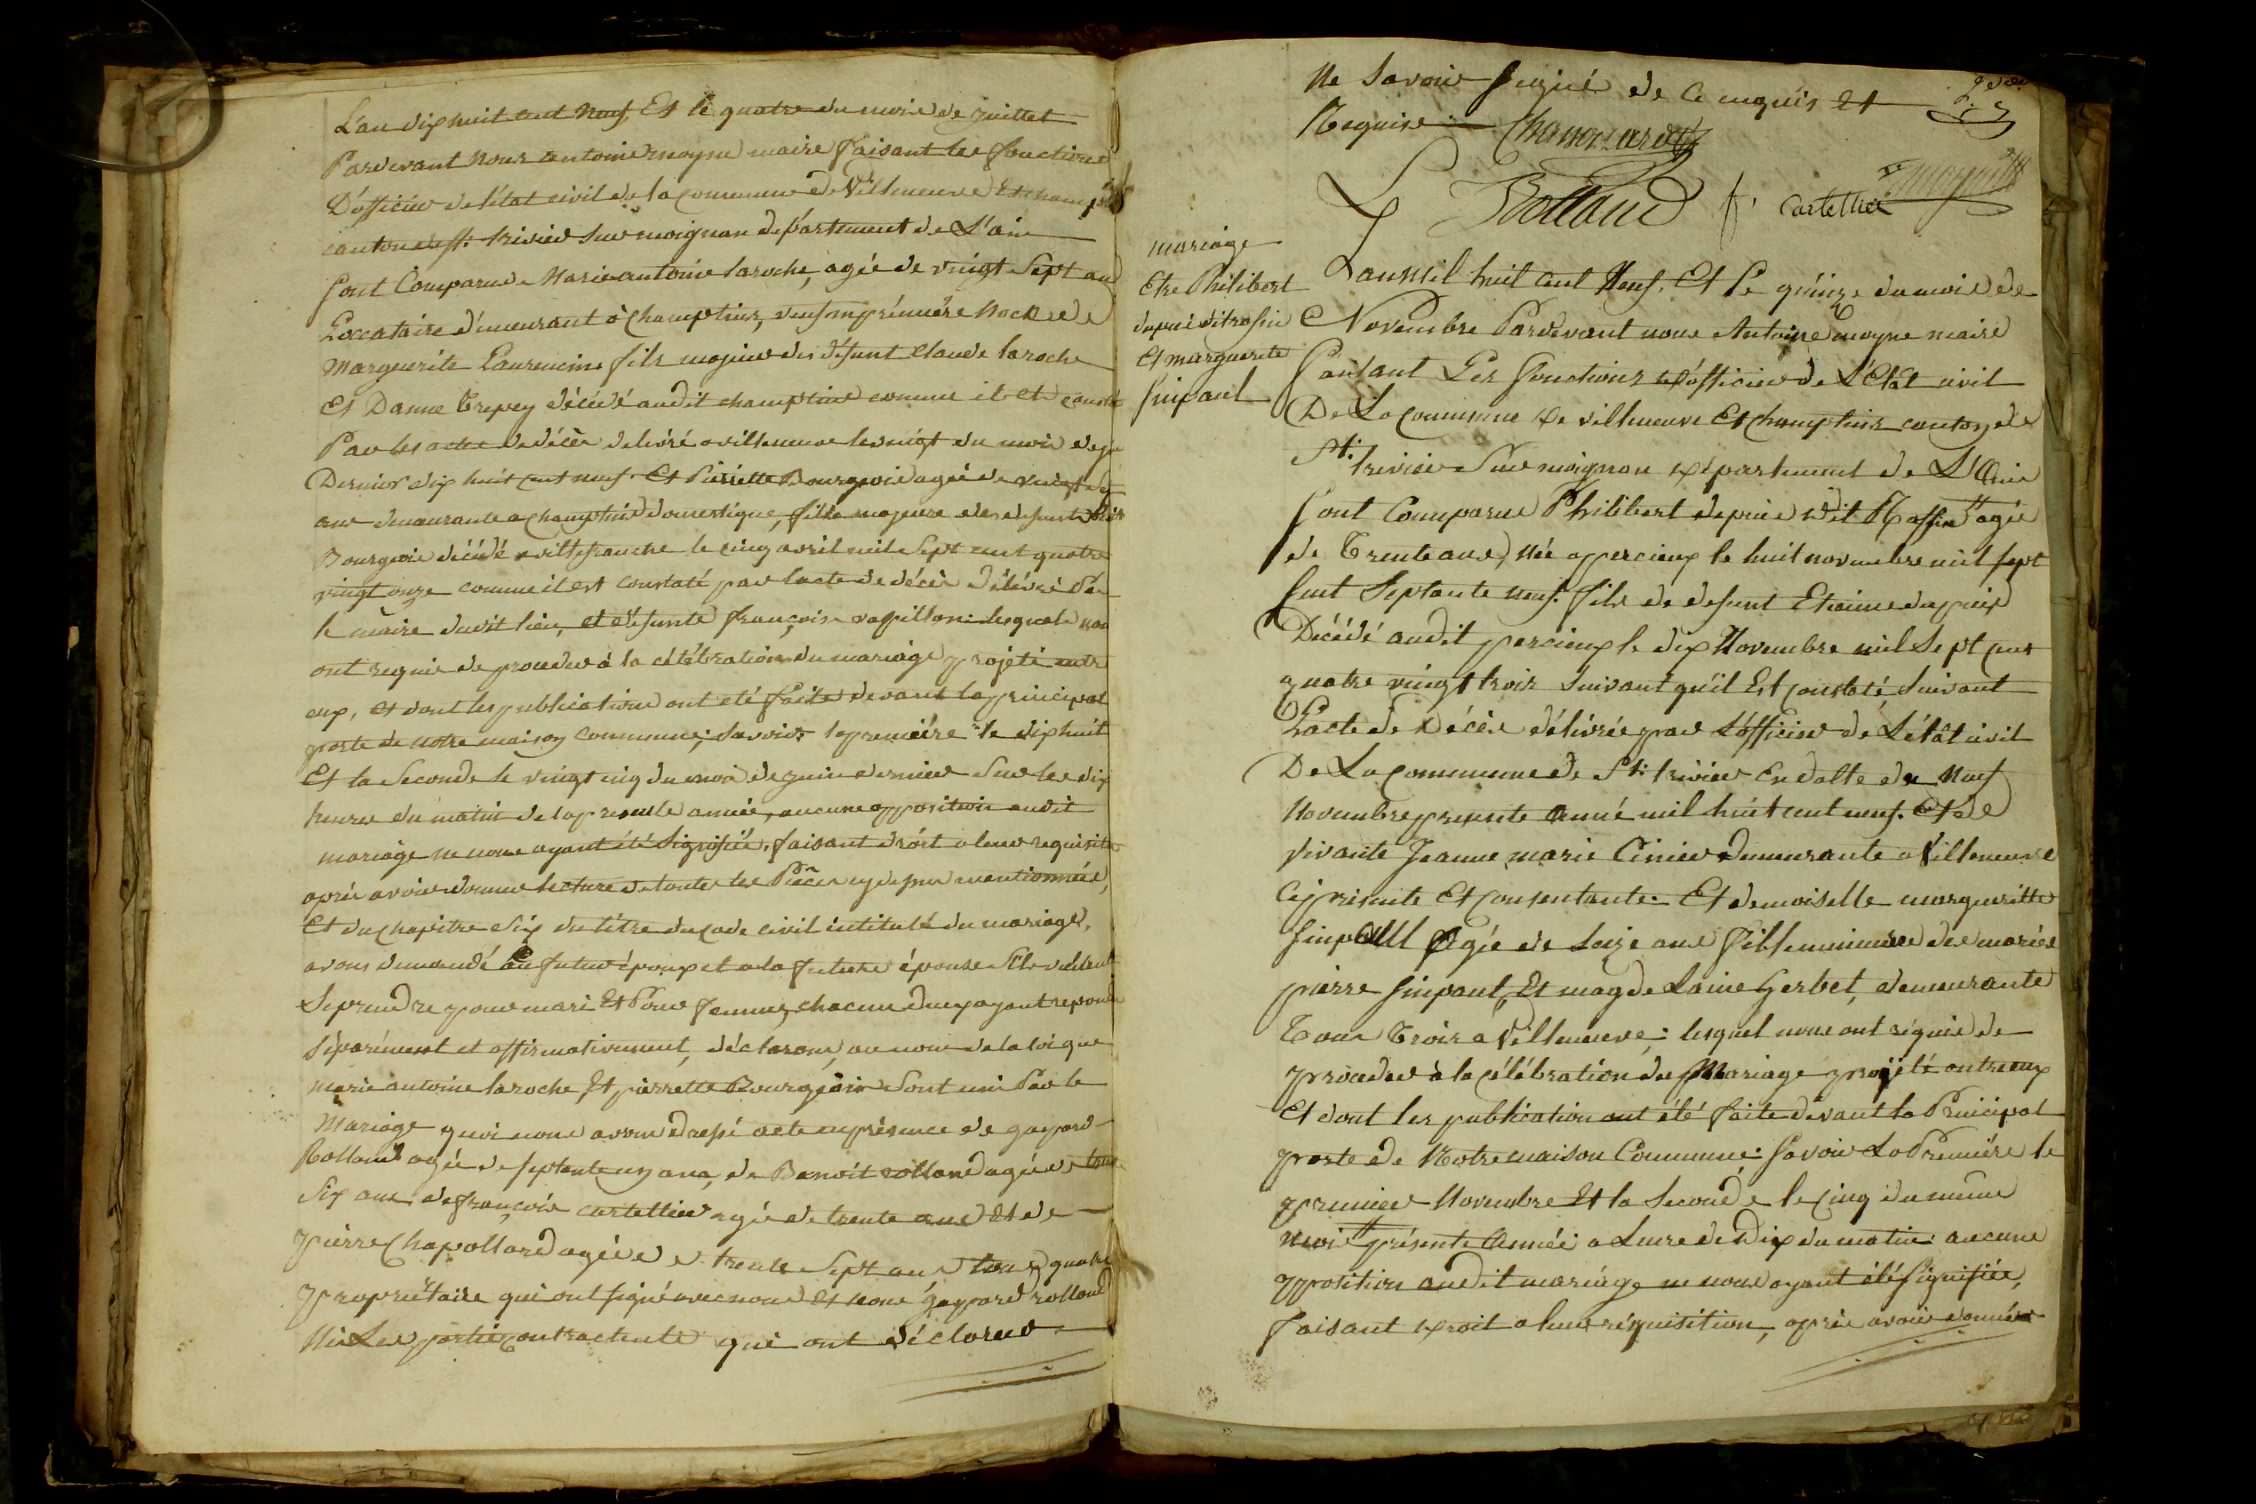 L'an dix huit cent neuf, Et le quatre du mois de juillet
Pardevant Nous antoine moyne maire faisant les fonctions
D'officier de létat civil de la commune de Villeneuve Et champtins
canton de st: trivier sur moignan département de L'ain
sont Comparus Marie antoine laroche, agée de vingt Sept ans
Loccataire demeurant à champtins, veuf en première noce de
Marguerite Laurencin fils majeur des défunt claude laroche
Et Danne Crepey décédé audit champtins comme il et consté
Par les actes de décès delivré a villeneuve le vingt du mois de
Dernier dix huit cent neuf. Et Pierrette Bourgeois agée de vingt
ans demeurante a champtins domestique, fille majeure des defunt
Bourgeois décédé a villefranche le cinq avril mil Sept cent quatre
vingt onze comme il est constaté par lacte de décès délivré Par
le maire dudit lieu, et défunte françoise vapillon: lesquels nous
ont requis de proceder à la célébration du mariage projeté entre
eux, et dont les publications ont été faites devant la principal
porte de notre maison commune; Savoir la première le dix huit
Et la Seconde le vingt cinq du mois de juin dernier Sur les dix
heures du matin de la presente année, aucune opposition audit
mariage ne nous ayant été Signifiée. faisant droit a leur requisition
après avoir donné lecture de toutes les Pièces cy dessus mentionnées,
Et du chapitre Six du titre du code civil intitulé du mariage,
avons demandé Au futur époux et a la future épouse S'ils veulent
Se prendre pour mari Et Pour femme, chacun deux ayant repondu
Séparément et affirmativement, déclarons au nom de la loi que
marie antoine laroche Et pierrette Bourgeois Sont uni Par le
Mariage quoi nous avons dressé acte en présence de gaspard
Rolland agée de septante un ans, de Benoit rolland agée de trente
Six ans, de françois cartellier agée de trente ans Et de
pierre Chapollard agée de trente Sept ans tous quatre
Propriétaire qui ont signé avec nous Et Non gaspard rolland
Ni Les partie contractente qui ont déclarus
Ne Savoir Signé de Ce enquis Et
Requise Chapollard
L Rolland f. cartellier moyne
mariage
Etre Philibert
dupuis dit rassin
Et marguerite
simpaul
L'an Mil huit cent Neuf. Et Le quinze du mois de
Novembre Pardevant nous Antoine moyne maire
Faisant Les fonctions d'officier de L'Etat civil
De La commune de villeneuve Et champtins canton de
St: trivier Sur moignan département de L'Ain
Sont Comparus Philibert dupuis dit Rassin agée
de Trente ans, Née a percieux le huit novembre mil sept
Cent Septante neuf. fils de defunt Etienne dupuis
Décédé audit percieux le dix Novembre mil Sept cent
quatre vingt trois Suivant qu'il Est constaté Suivant
Lacte de Décès délivrée par L'officier de L'état civil
De La commune de St: trivier En datte du Neuf
Novembre presente Anné mil huit cent neuf. Et de
vivante Jeanne marie Cinier demeurante a Villeneuve
Ci presente Et consentante. Et demoiselle marguerite
Simpaul Agée de Seize ans Fille mineure des mariés
pierre Simpaul, Et magdelaine Gerbet, demeurante
Tous Trois a Villeneuve; lesquel nous ont réquis de
proceder à la célébration du Mariage projeté entre eux
Et dont les publication ont été faite devant la Principal
porte de Notre maison Commune: Savoir La Première le
premier Novembre Et la Seconde le cinq du même
Mois présente Année a Lheure de Dix du matin: aucune
opposition audit mariage ne nous ayant été Signifiée,
Faisant droit a leur réquisition, après avoir donnée